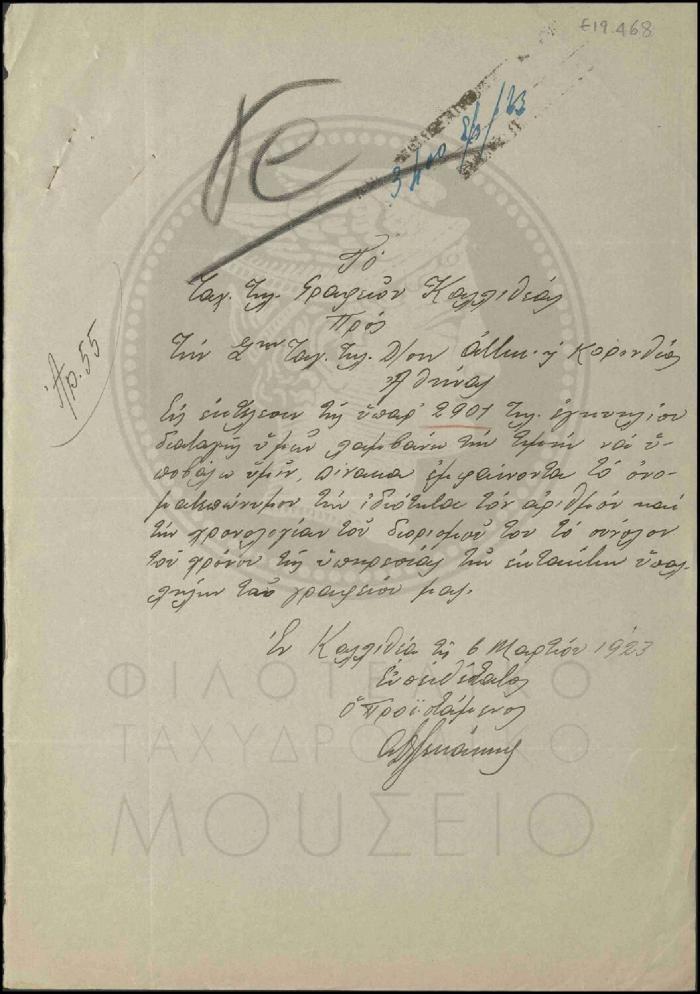 E19.468
3400 8/3/23
Ἀρ. 55
Τὸ
Ταχ. Τηλ. Γραφεῖον Καλλιθέας
Πρός
Τὴν Ταχ. Τηλ. Δ/σιν Ἀττικ. ἢ Κορινθίας
Ἀθήνας
Εἰς ἐκτέλεσιν τῆς ὑπ' ἀρ. 2901 τηλ. ἐγκυκλίου
διαταγῆς ὑμῶν λαμβάνω τὴν τιμὴν νὰ ὑ-
ποβάλω ὑμῖν, πίνακα ἐμφαίνοντα τὸ ὀνο-
ματεπώνυμον τὴν ἰδιότητα τὸν ἀριθμὸν καὶ
τὴν χρονολογίαν τοῦ διορισμοῦ των τὸ σύνολον
τοῦ χρόνου τῆς ὑπηρεσίας τῶν ἐκτάκτων ὑπαλ-
λήλων τοῦ γραφείου μας.
Ἐν Καλλιθέᾳ τῇ 6 Μαρτίου 1923
Εὐπειθέστατος
Ὁ Προϊστάμενος
ΦΙΛΟΤΕΛΙΚΟ
ΤΑΧΥΔΡΟΜΙΚΟ
ΜΟΥΣΕΙΟ